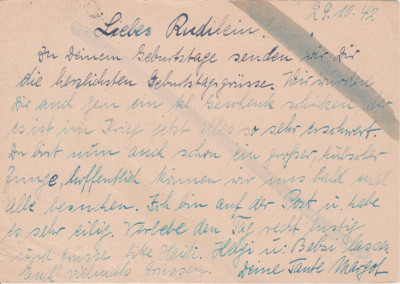 29.10.42
Liebes Rudilein!
Zu Deinem Geburtstage senden wir Dir
die herzlichsten Geburtstagsgrüsse. Wir würden
Dir auch gern ein Geschenk schicken aber
es ist im Krieg jetzt alles so sehr erschwert.
Du bist nun auch schon ein großer, hübscher
Junge, hoffentlich können wir uns bald mal
alle besuchen. Ich bin auf der Post u. habe
es sehr eilig. Verlebe den Tag recht lustig
und grüsse Heidi. Helgi u. Bebsi lassen
Euch vielmals grüssen. Deine Tante Margot